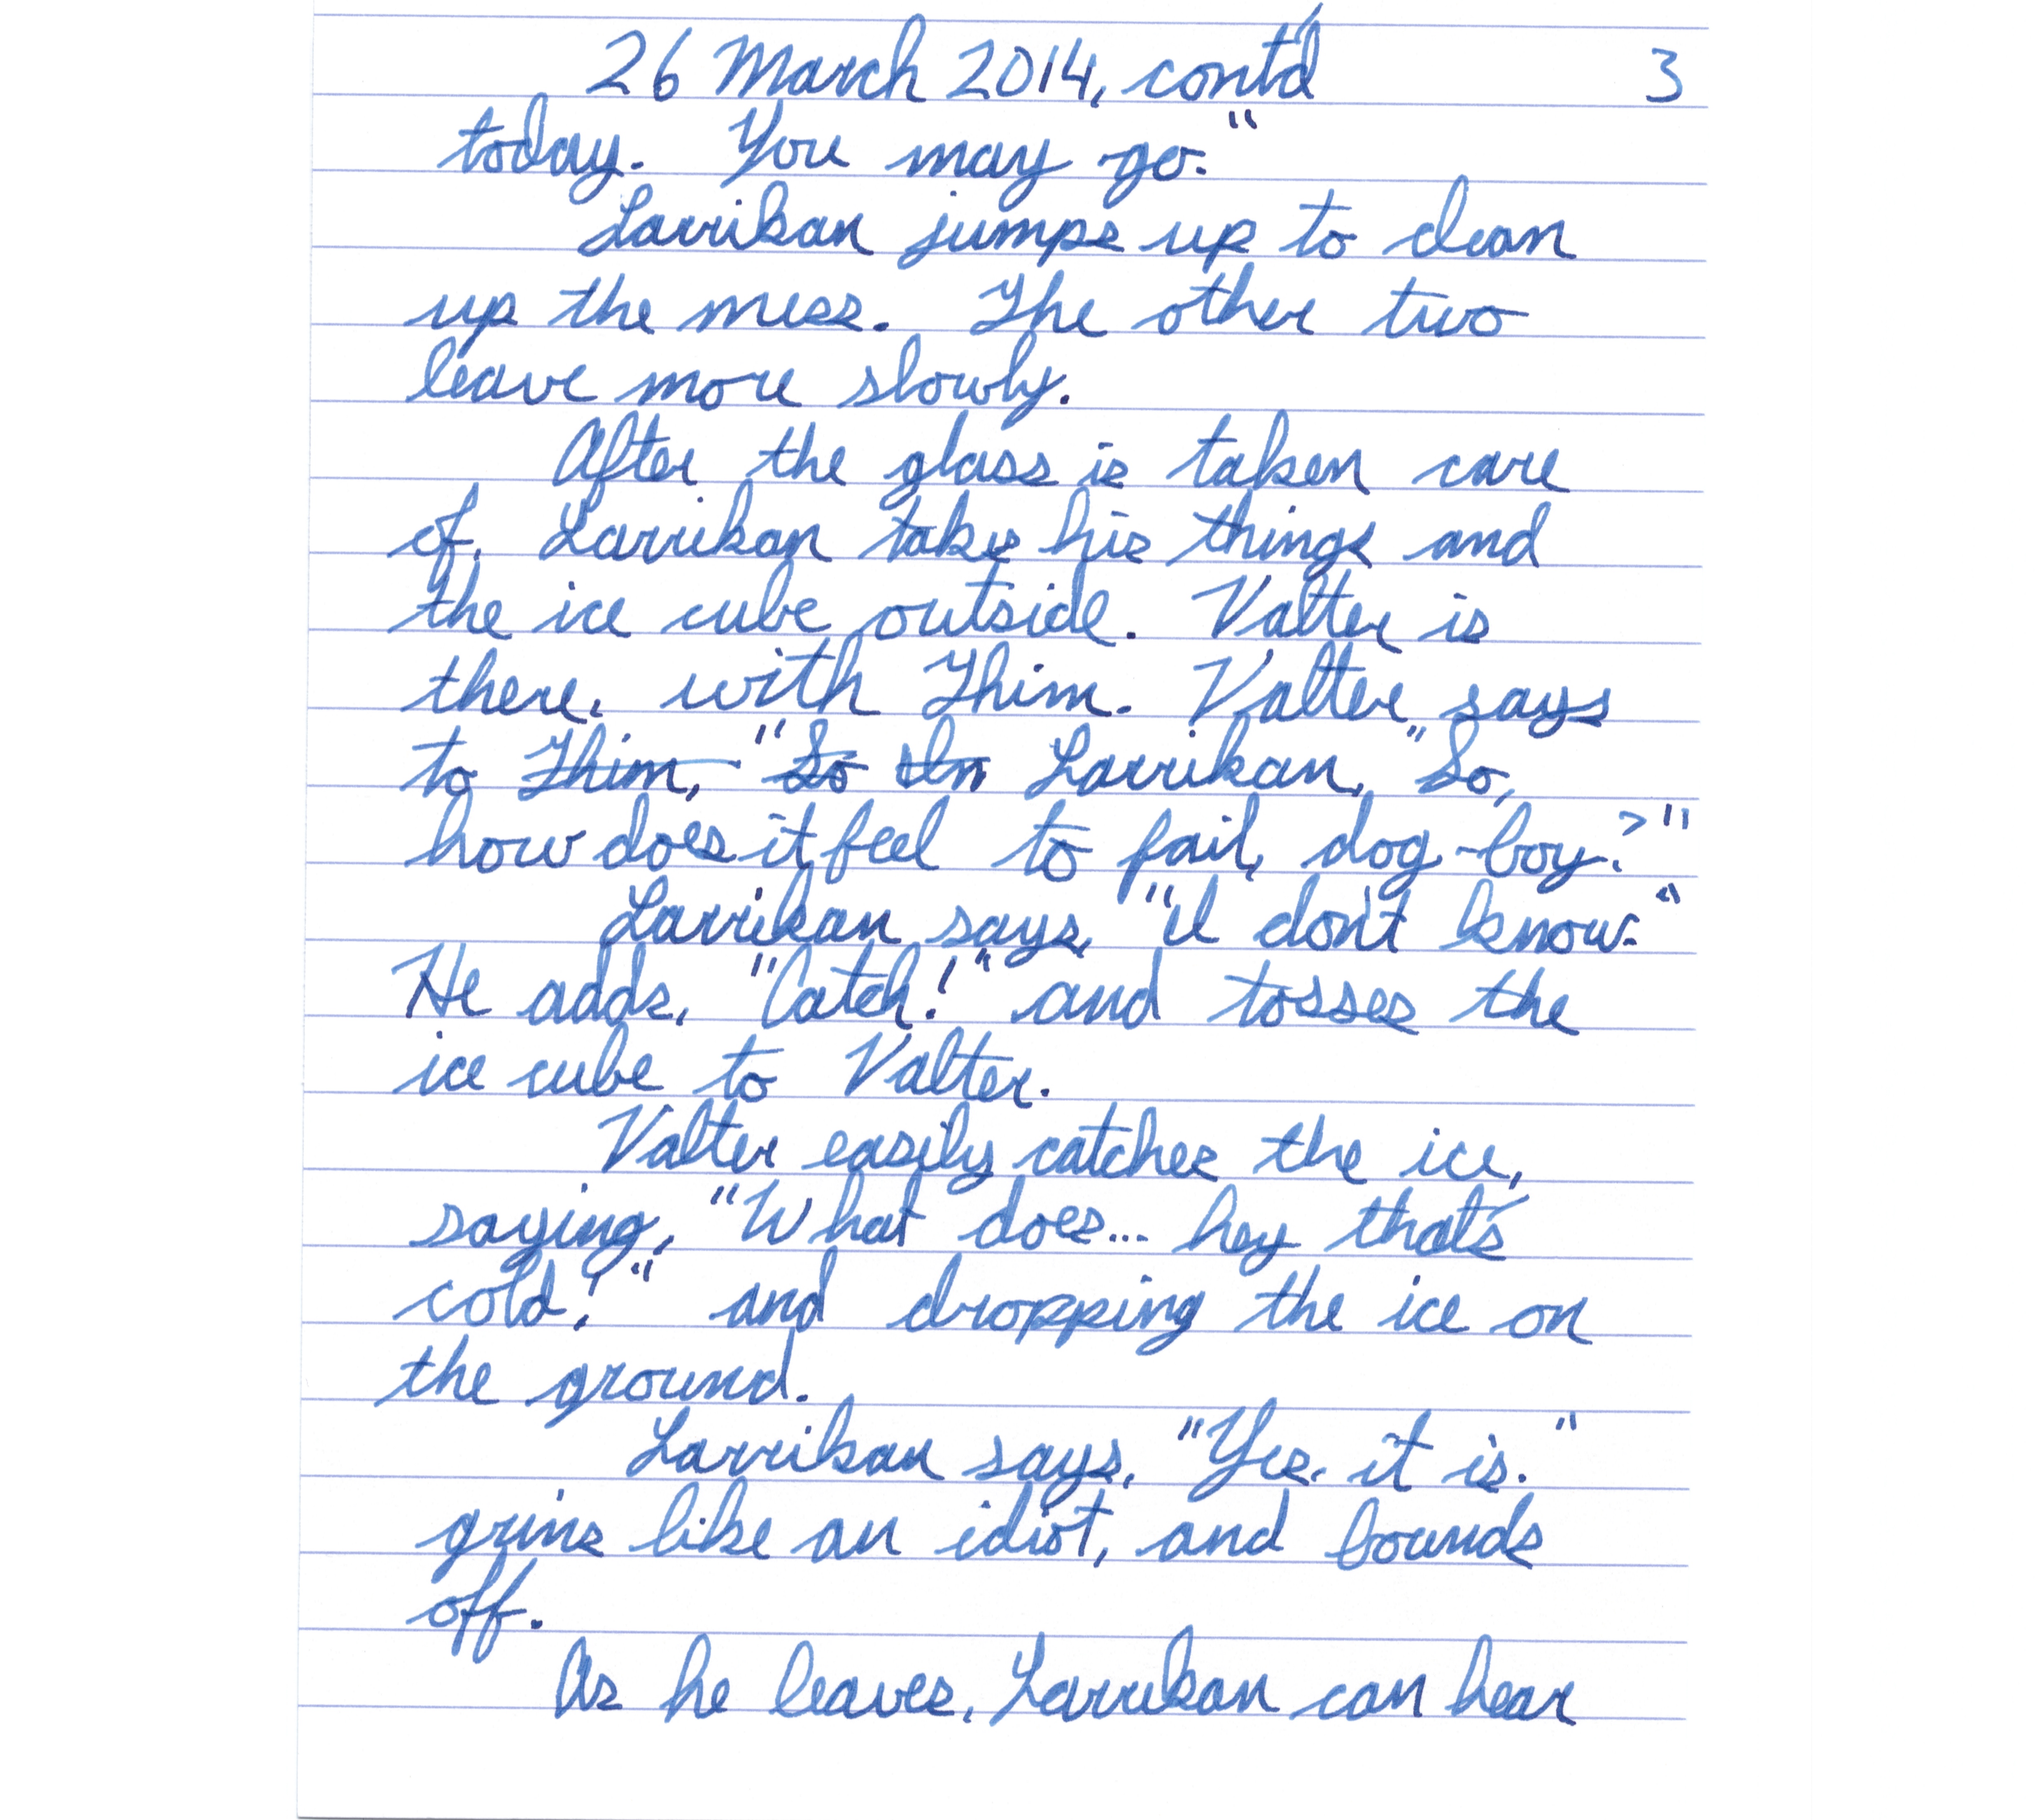 26 March 2014, cont'd 3
today. You may go."
Larrikan jumps up to clean
up the mess. The other two
leave more slowly.
After the glass is taken care
of, Larrikan takes his things and
the ice cube outside. Valter is
there, with Thim. Valter says
to Thim, "So In Larrikan, "So,
how does it feel to fail, dog-boy?"
Larrikan says, "I don't know."
He adds, "Catch!" and tosses the
ice cube to Valter.
Valter easily catches the ice,
saying, "What does... hey that's
cold!" and dropping the ice on
the ground.
Larrikan says, "Yes, it is."
grins like an idiot, and bounds
off.
As he leaves, Larrikan can hear